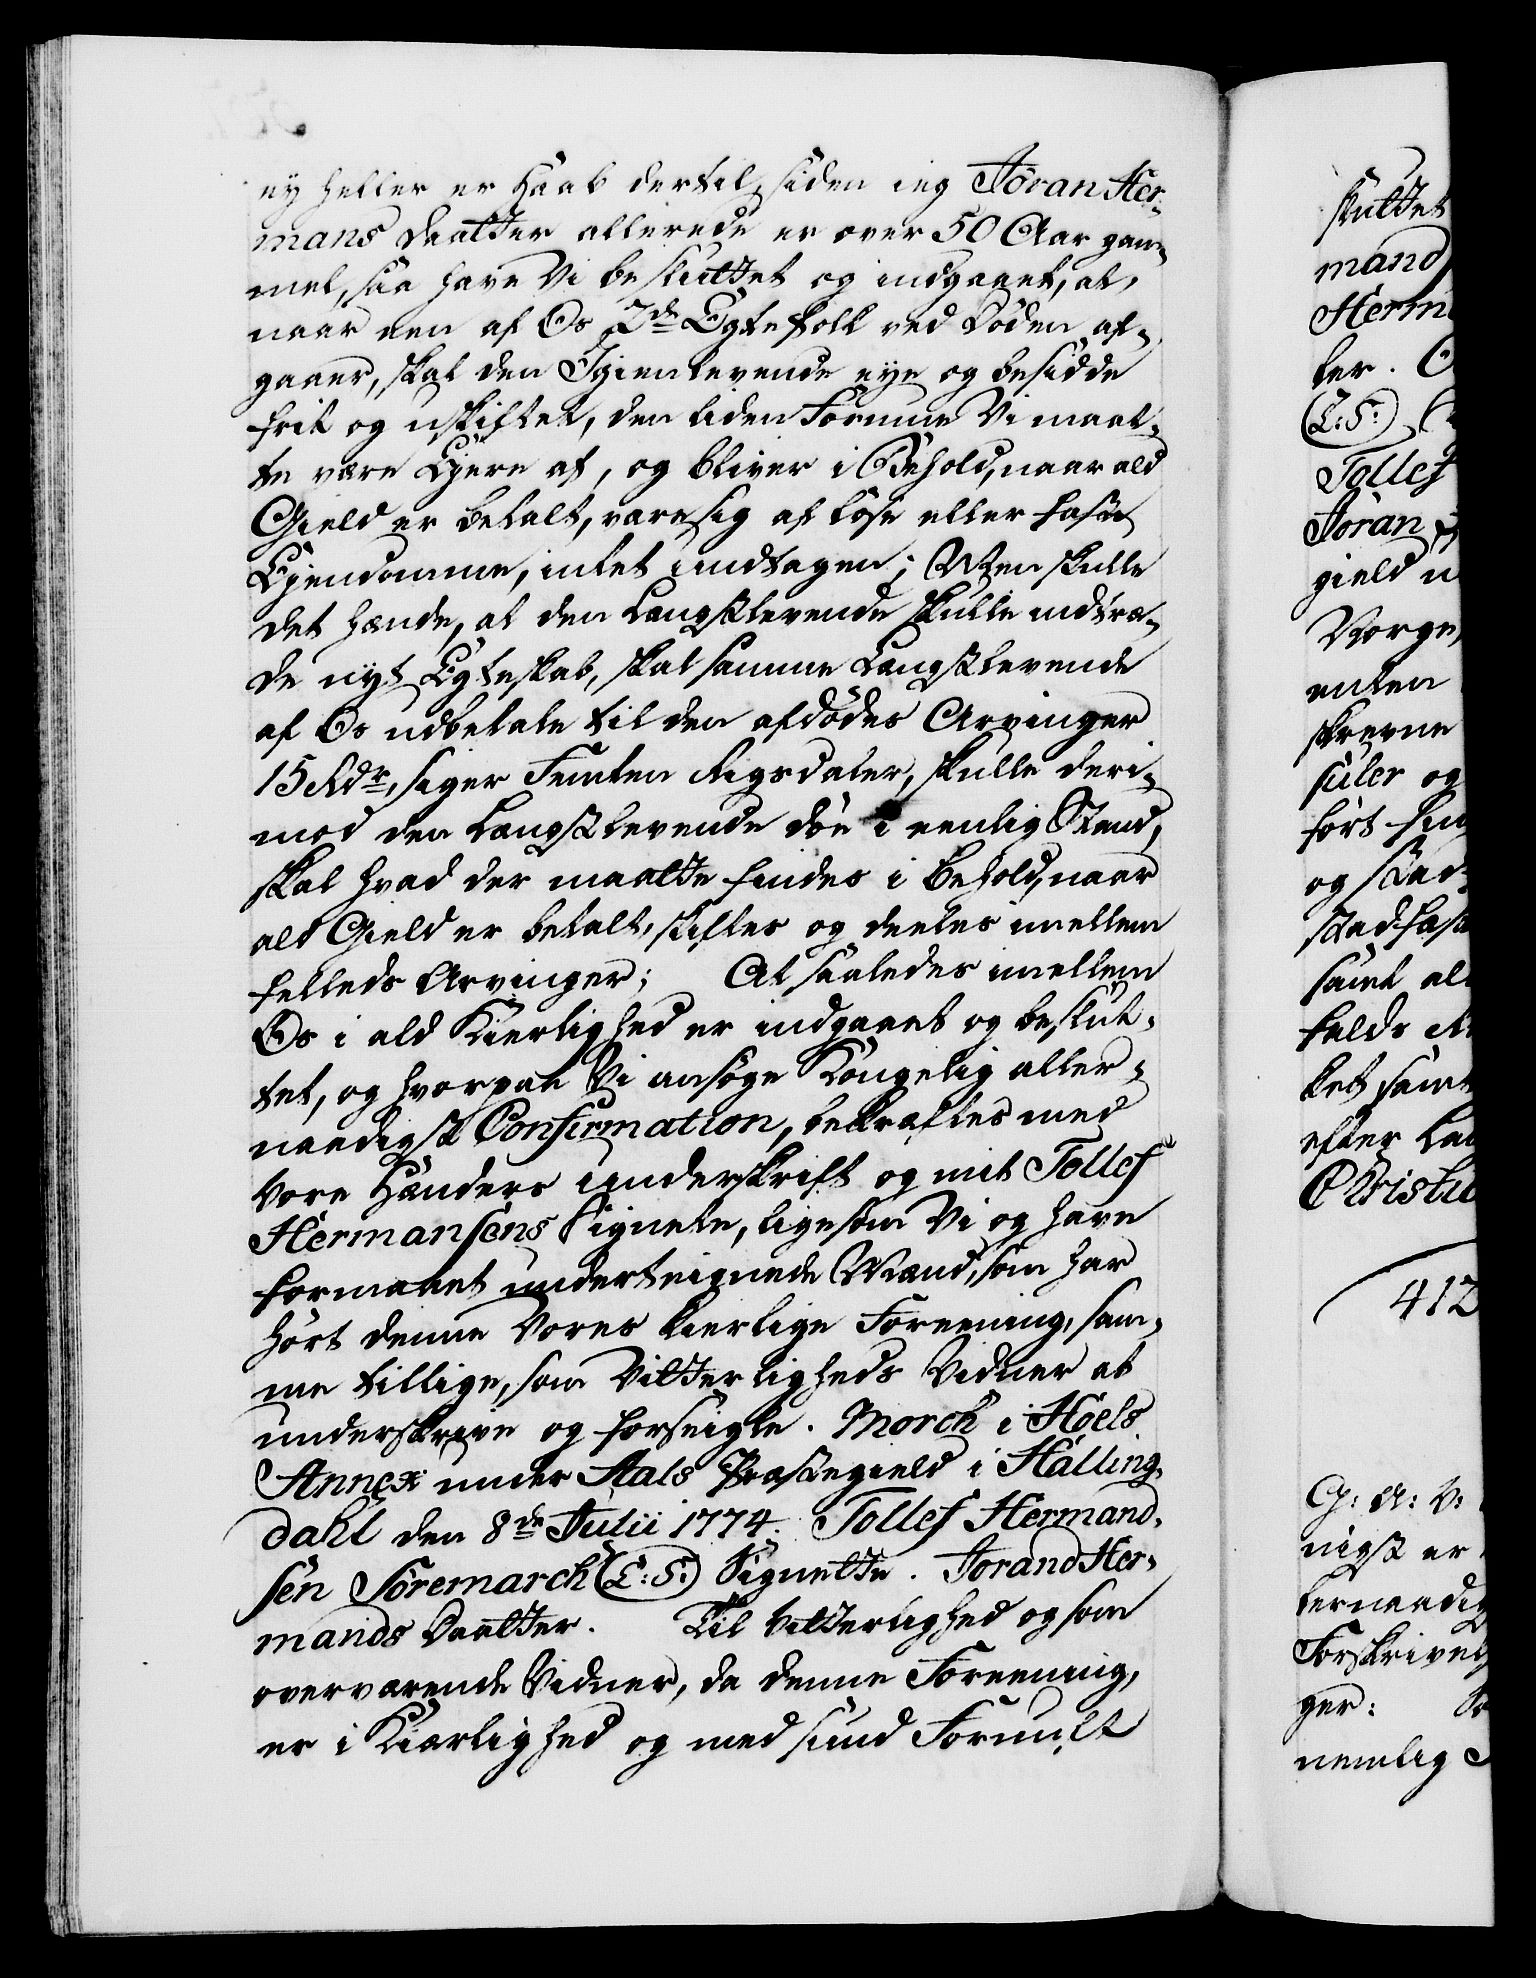 ey heller er Haab dertil, siden ieg Jöran Her-
mans Daatter allerede er over 50 Aar gam-
mel, saa have Vi besluttet og indgaaet, at,
naar een af Os 2de Egtefolk ved Döden af-
gaaer, skal den Igienlevende eye og besidde
frit og uskiftet, den liden Formue Vi maat-
te være Ejere af, og bliver i Behold, naar ald
Gield er betalt, være sig af löse eller faste
Ejendomme, intet undtagen; Men skulle
det hænde, at den Længstlevende skulle indtræ-
de nyt Egteskab, skal samme Længstlevende
af Os udbetale til den afdödes Arvinger
15 Rdr, siger Femten Rigsdaler, skulle deri-
mod den Længstlevende döe i eenlig Stand,
skal hvad der maatte findes i Behold, naar
ald Gield er betalt, skiftes og deeles imellem
felleds Arvinger; At saaledes imellem
Os i ald Kierlighed er indgaaet og beslut-
tet, og hvorpaa Vi ansöge Kongelig aller-
naadigst Confirmation, bekræftes med
Vore Hænders underskrift og mit Tollef
Hermansens Signete, ligesom Vi og have
formaaet underteignede Mænd, som har
hört denne Vores kierlige Foreening, sam-
me tillige, som Vitterligheds Vidner at
underskrive og forseigle. Morch i Hoels
Annex under Aals Præstegield i Halling-
dahl den 8de Julii 1774. Tollef Hermand-
sen Söremarch (L:S:) Signette. Jorand Her-
mands Daatter. Til Vitterlighed og som
overværende Vidner, da denne Foreening,
er i Kiærlighed og med sund Fornuft
skuttet
mand
Herm
ler.
(L:S:)
Tollef
Joran
gield
Norge,
enten
skrevne
suler og
fört
og stad-
stadfæst
samt al
falds
ket samt
efter
Christia
412
G: A: V:
nigst er
lernaadig
Forskrivels
ger:
nemlig